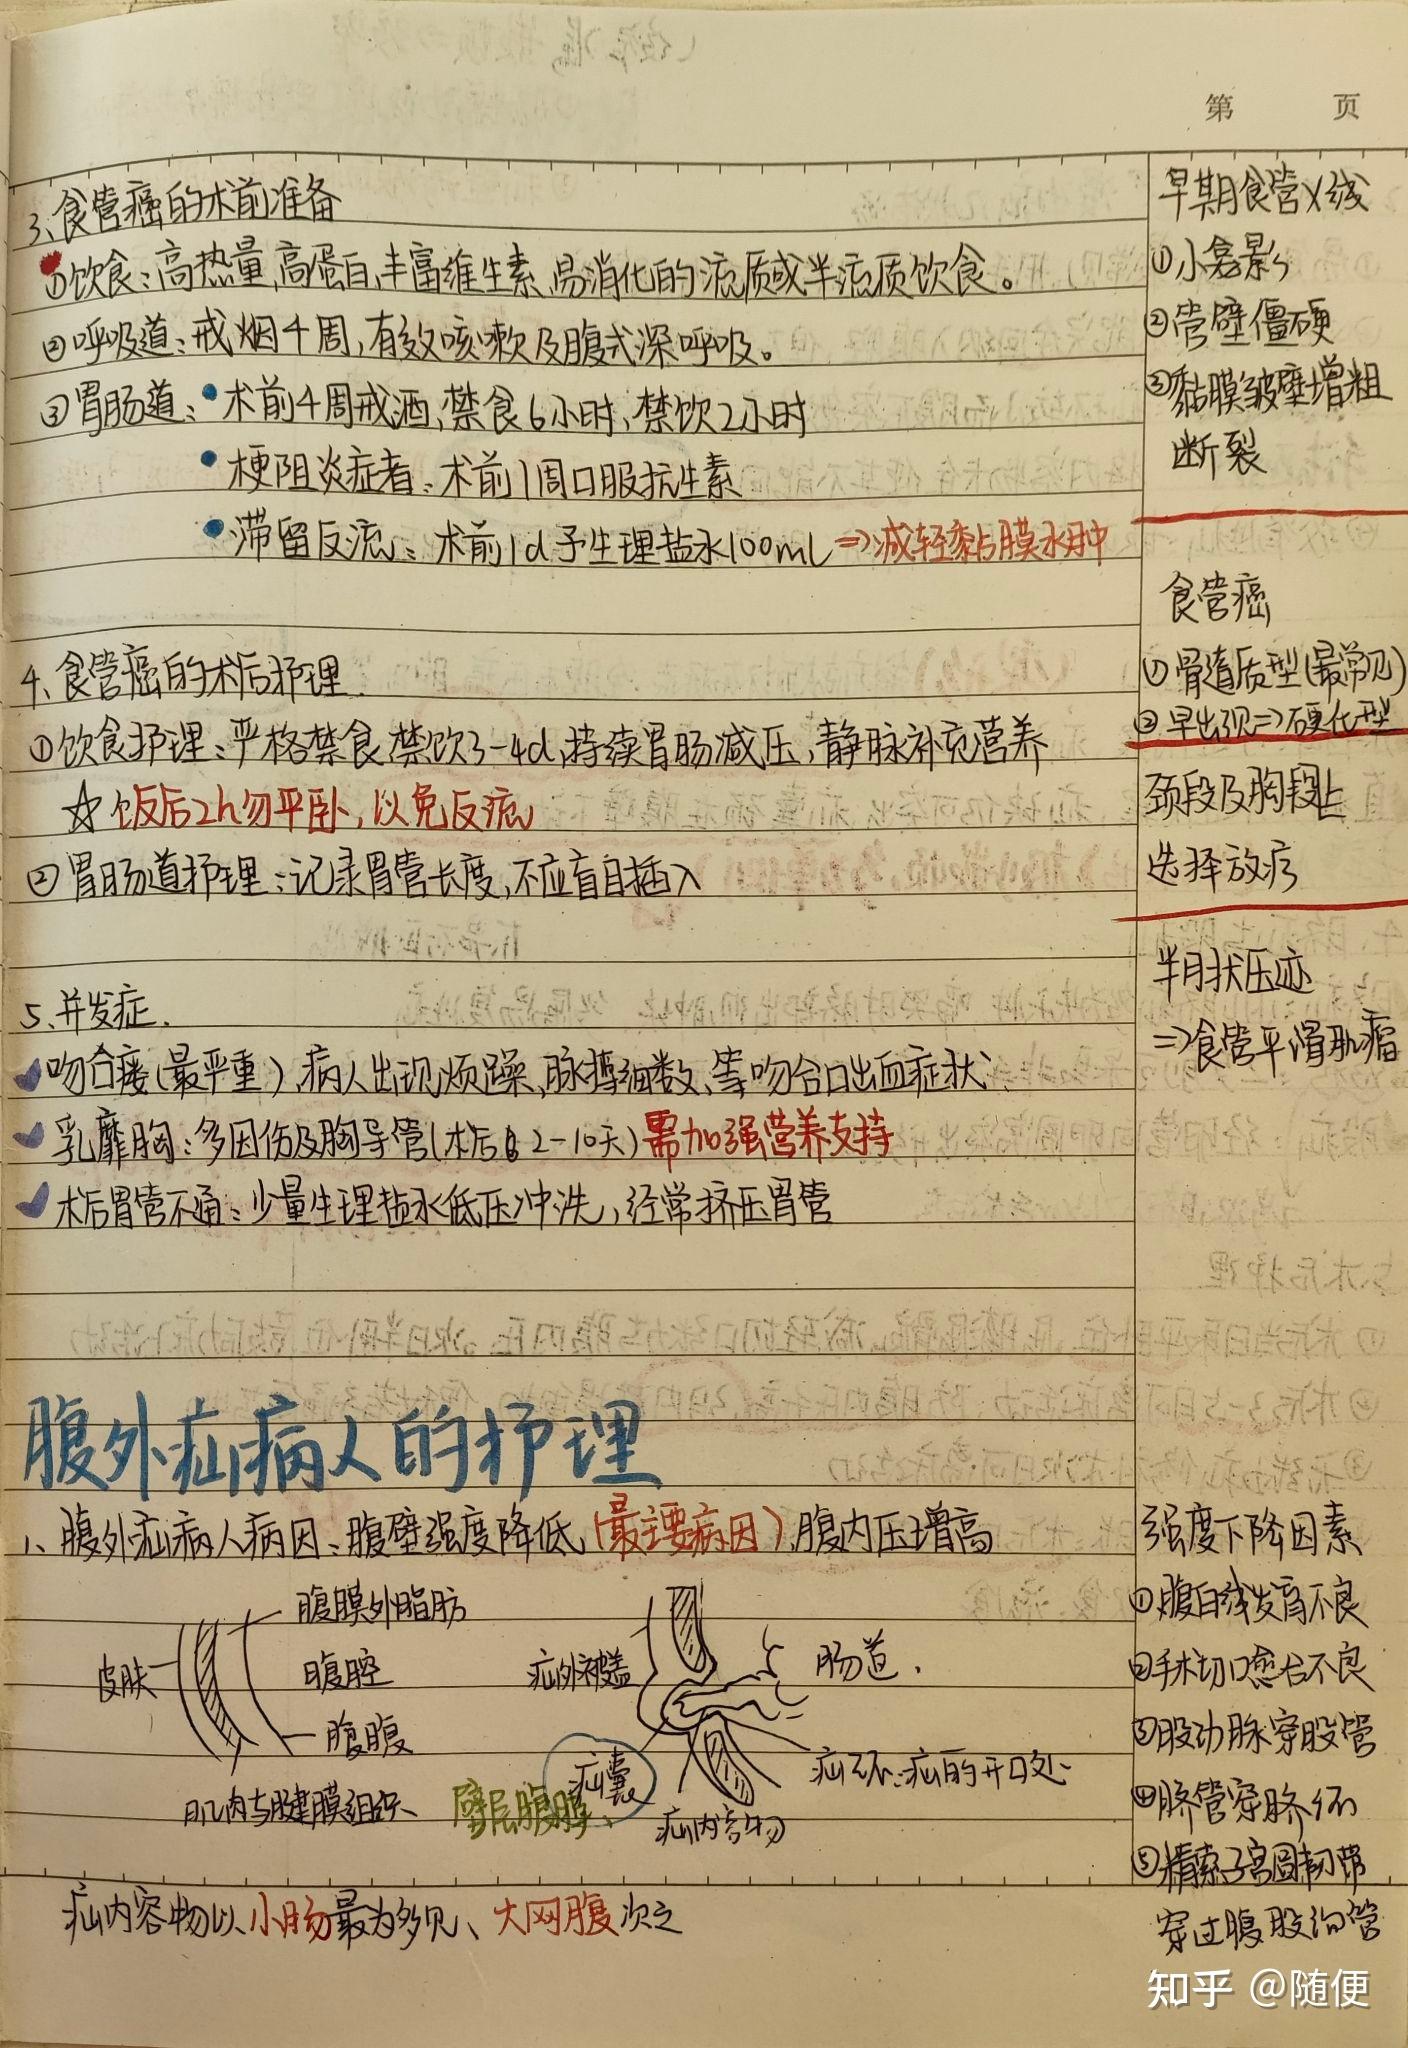 第 页
3、食管癌的术前准备
①饮食：高热量、高蛋白、丰富维生素、易消化的流质或半流质饮食。
②呼吸道：戒烟4周，有效咳嗽及腹式深呼吸。
③胃肠道：•术前4周戒酒，禁食6小时、禁饮2小时
•梗阻炎症者：术前1周口服抗生素
•滞留反流：术前1d予生理盐水100ml⇒减轻黏膜水肿
4、食管癌的术后护理.
①饮食护理：严格禁食、禁饮3-4d，持续胃肠减压，静脉补充营养
☆饭后2h勿平卧，以免反流
②胃肠道护理：记录胃管长度，不应盲目插入
5、并发症.
吻合瘘(最严重)、病人出现烦躁、脉搏细数、等吻合口出血症状
乳靡胸：多因伤及胸导管(术后2-10天)需加强营养支持
术后胃管不通：少量生理盐水低压冲洗，经常挤压胃管
早期食管X线
①小龛影
②管壁僵硬
③黏膜皱壁增粗
断裂
食管癌
①骨遀质型(最常见)
②早出现⇒硬化型
颈段及胸段上
选择放疗
半月状压迹
⇒食管平滑肌瘤
腹外疝病人的护理
1、腹外疝病人病因：腹壁强度降低(最主要病因)、腹内压增高
腹膜外脂肪
皮肤
腹腔
腹膜
肌肉与腱膜组织
疝外被盖
肠道.
疝囊
壁层腹膜
疝环：疝的开口处
疝内容物
疝内容物以小肠最为多见、大网膜次之
强度下降因素
①腹白线发育不良
②手术切口愈合不良
③股动脉穿股管
④脐管穿脐环
⑤精索子宫圆韧带
穿过腹股沟管
知乎 @随便